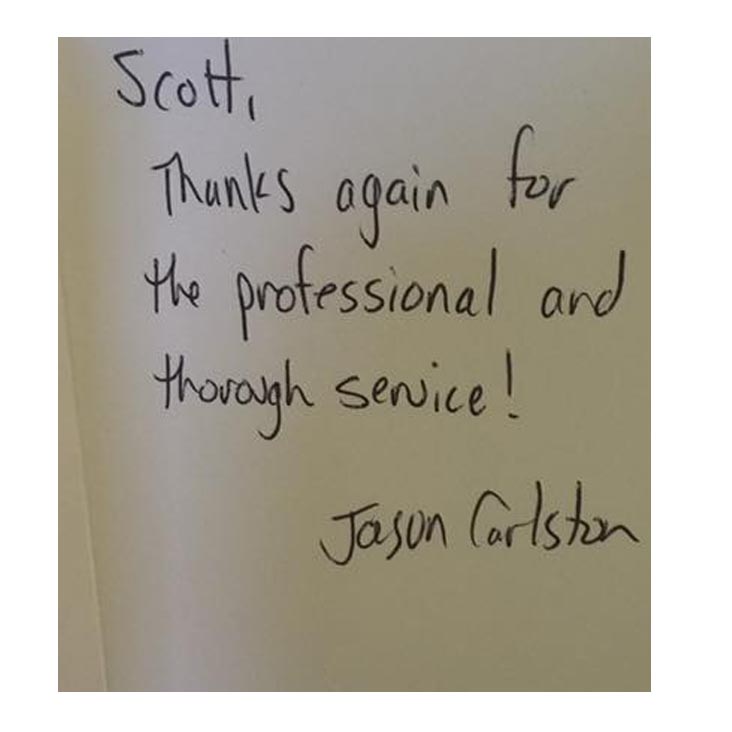 Scott,
Thanks again for
the professional and
thorough service!
Jason Carlston